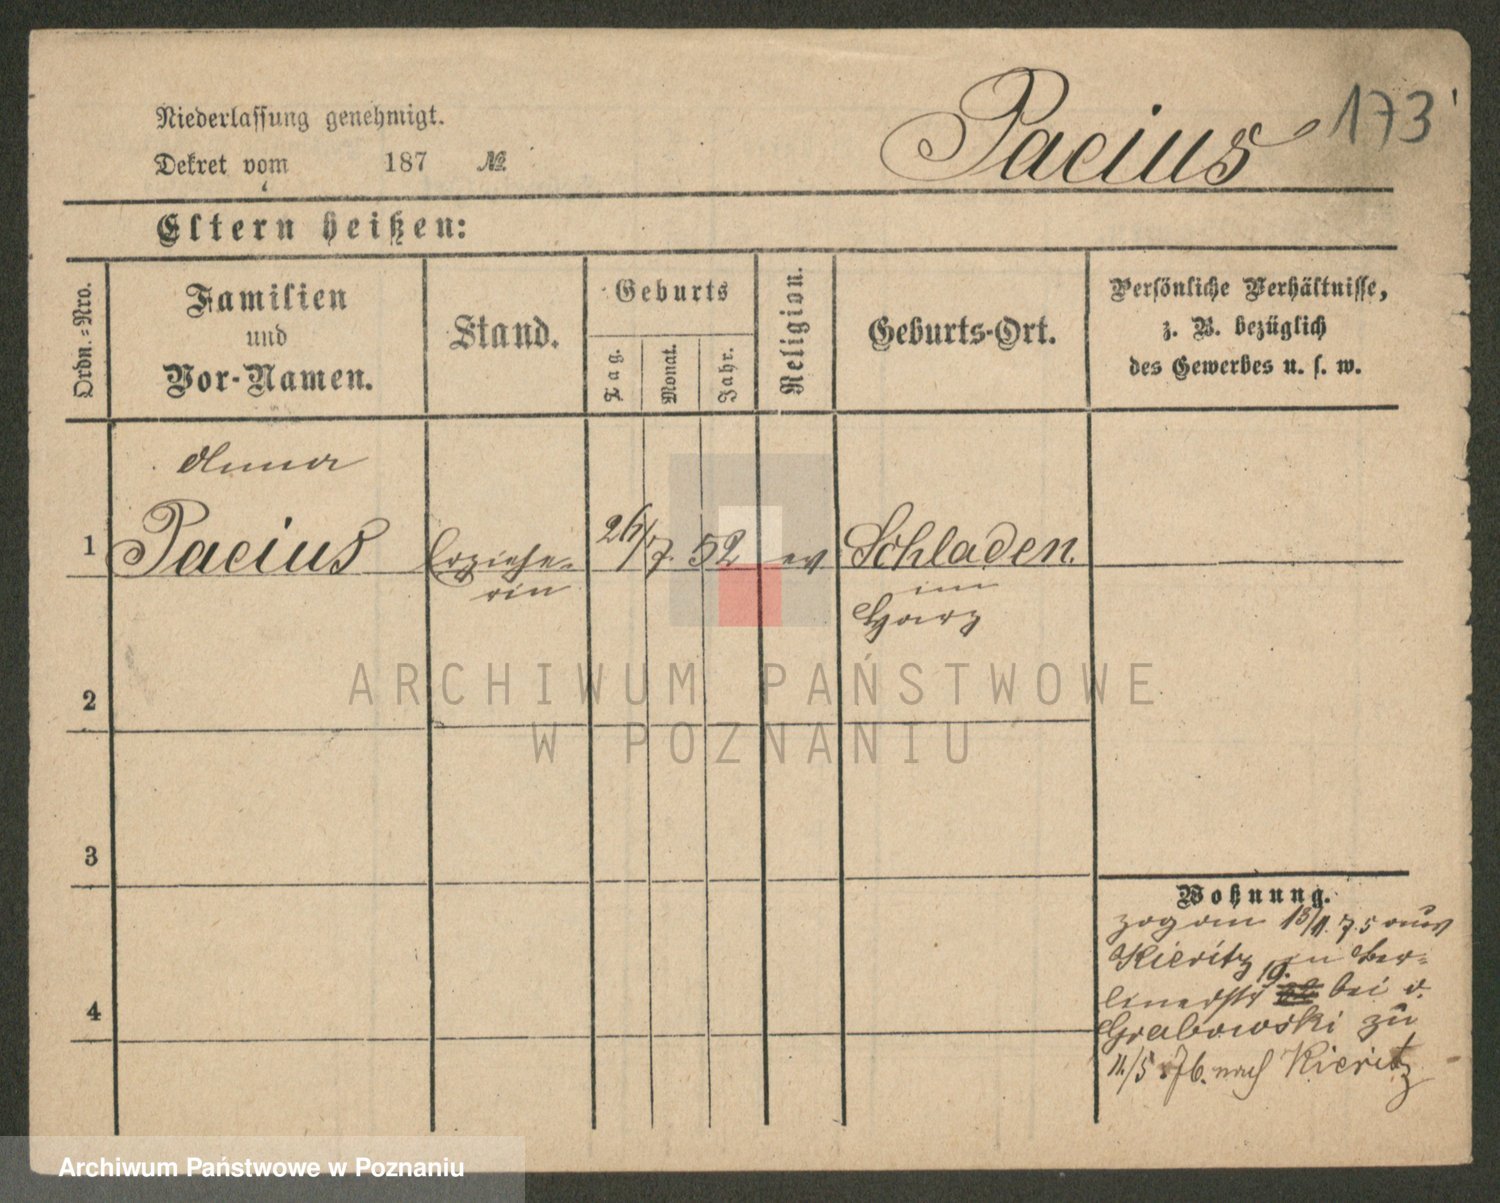 Niederlassung genehmigt.
Dekret vom 187 №
Pacius
173
Eltern heißen:
Ordn.-Nro.
Familien
und
Vor-Namen.
Stand.
Geburts
Tag.
Monat.
Jahr.
Religion.
Geburts-Ort.
Persönliche Verhältnisse,
z. B. bezüglich
des Gewerbes u. s. w.
Anna
1 Pacius Erziehe- 26/7. 52 ev Schladen.
rin im
Harz
2
3
4
Wohnung.
zog am 15/11. 75 aus
Kieritz in Ber-
linerstr 19. bei v.
Grabowski zu
11./5 76. nach Kieritz
ARCHIWUM PAŃSTWOWE
W POZNANIU
Archiwum Państwowe w Poznaniu